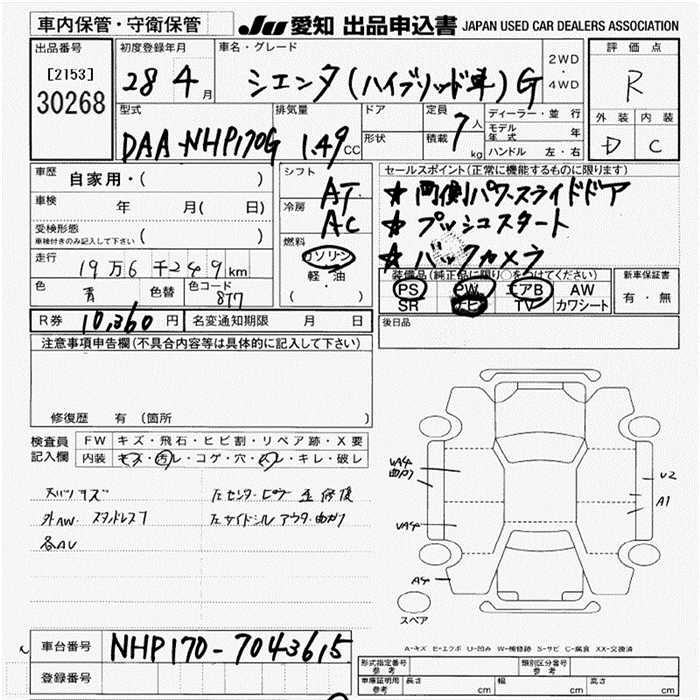 車内保管・守衛保管
JU 愛知 出品申込書 JAPAN USED CAR DEALERS ASSOCIATION
出品番号
[2153]
30268
初度登録年月
28 4 月
車名・グレード
シエンタ(ハイブリッド車)G
2WD
・
4WD
評価点
R
外装 内装
D C
型式
DAA-NHP170G
排気量
1.49 CC
ドア
形状
定員 7 人
積載 kg
ディーラー・並行
モデル年式 年
ハンドル 左・右
車歴 自家用・( )
車検 年 月( 日)
受検形態
車検付きのみ記入して下さい ( )
走行
19万6千249km
色 青 色替 色コード 8T7
シフト AT
冷房 AC
燃料
ガソリン
軽・油
( )
セールスポイント(正常に機能するものに限ります)
★両側パワースライドドア
★プッシュスタート
★バックカメラ
装備品(純正品に限り○をつけてください)
PS PW エアB AW
SR ナビ TV カワシート
新車保証書
有・無
R券 10,360円 名変通知期限 月 日
後日品
注意事項申告欄(不具合内容等は具体的に記入して下さい)
修復歴 有(箇所
検査員記入欄
FW キズ・飛石・ヒビ割・リペア跡・X要
内装 キズ・汚レ・コゲ・穴・スレ・キレ・破レ
左センターピラー 修復
外AW スタッドレス
左サイドシル アウター曲がり
UA4
曲がり
UA4
A4
U2
A1
スペア
A-キズ E-エクボ U-凹み W-補修跡 S-サビ C-腐食 XX-交換済
車台番号 NHP170-7043615
登録番号
形式指定番号 参考
類別区分番号 参考
車庫証明用 参考 長さ cm 幅 cm 高さ cm